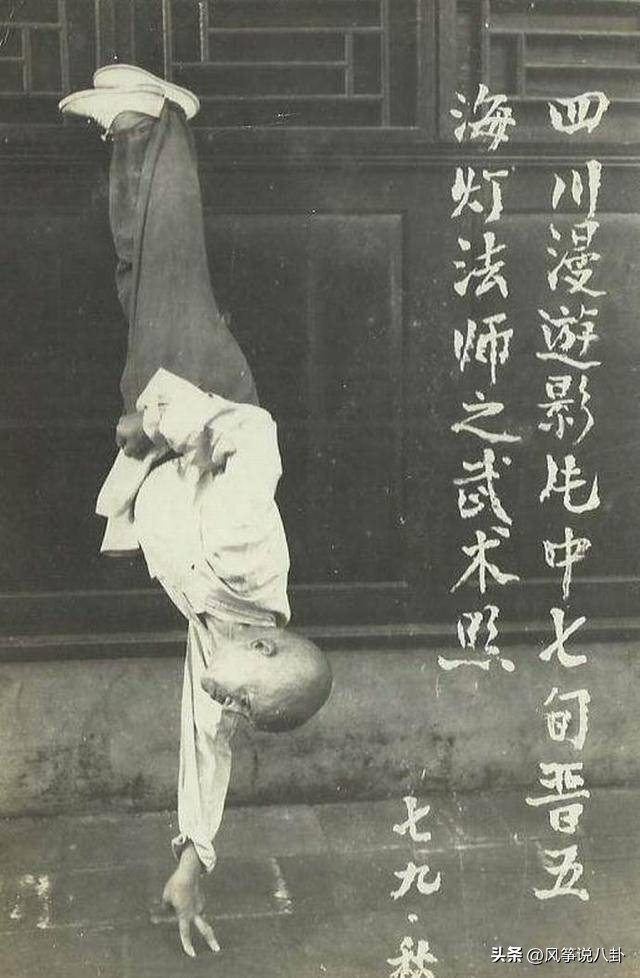 四川漫遊影片中七旬晋五
海灯法师之武术照
七九·秋
头条 @风筝说八卦